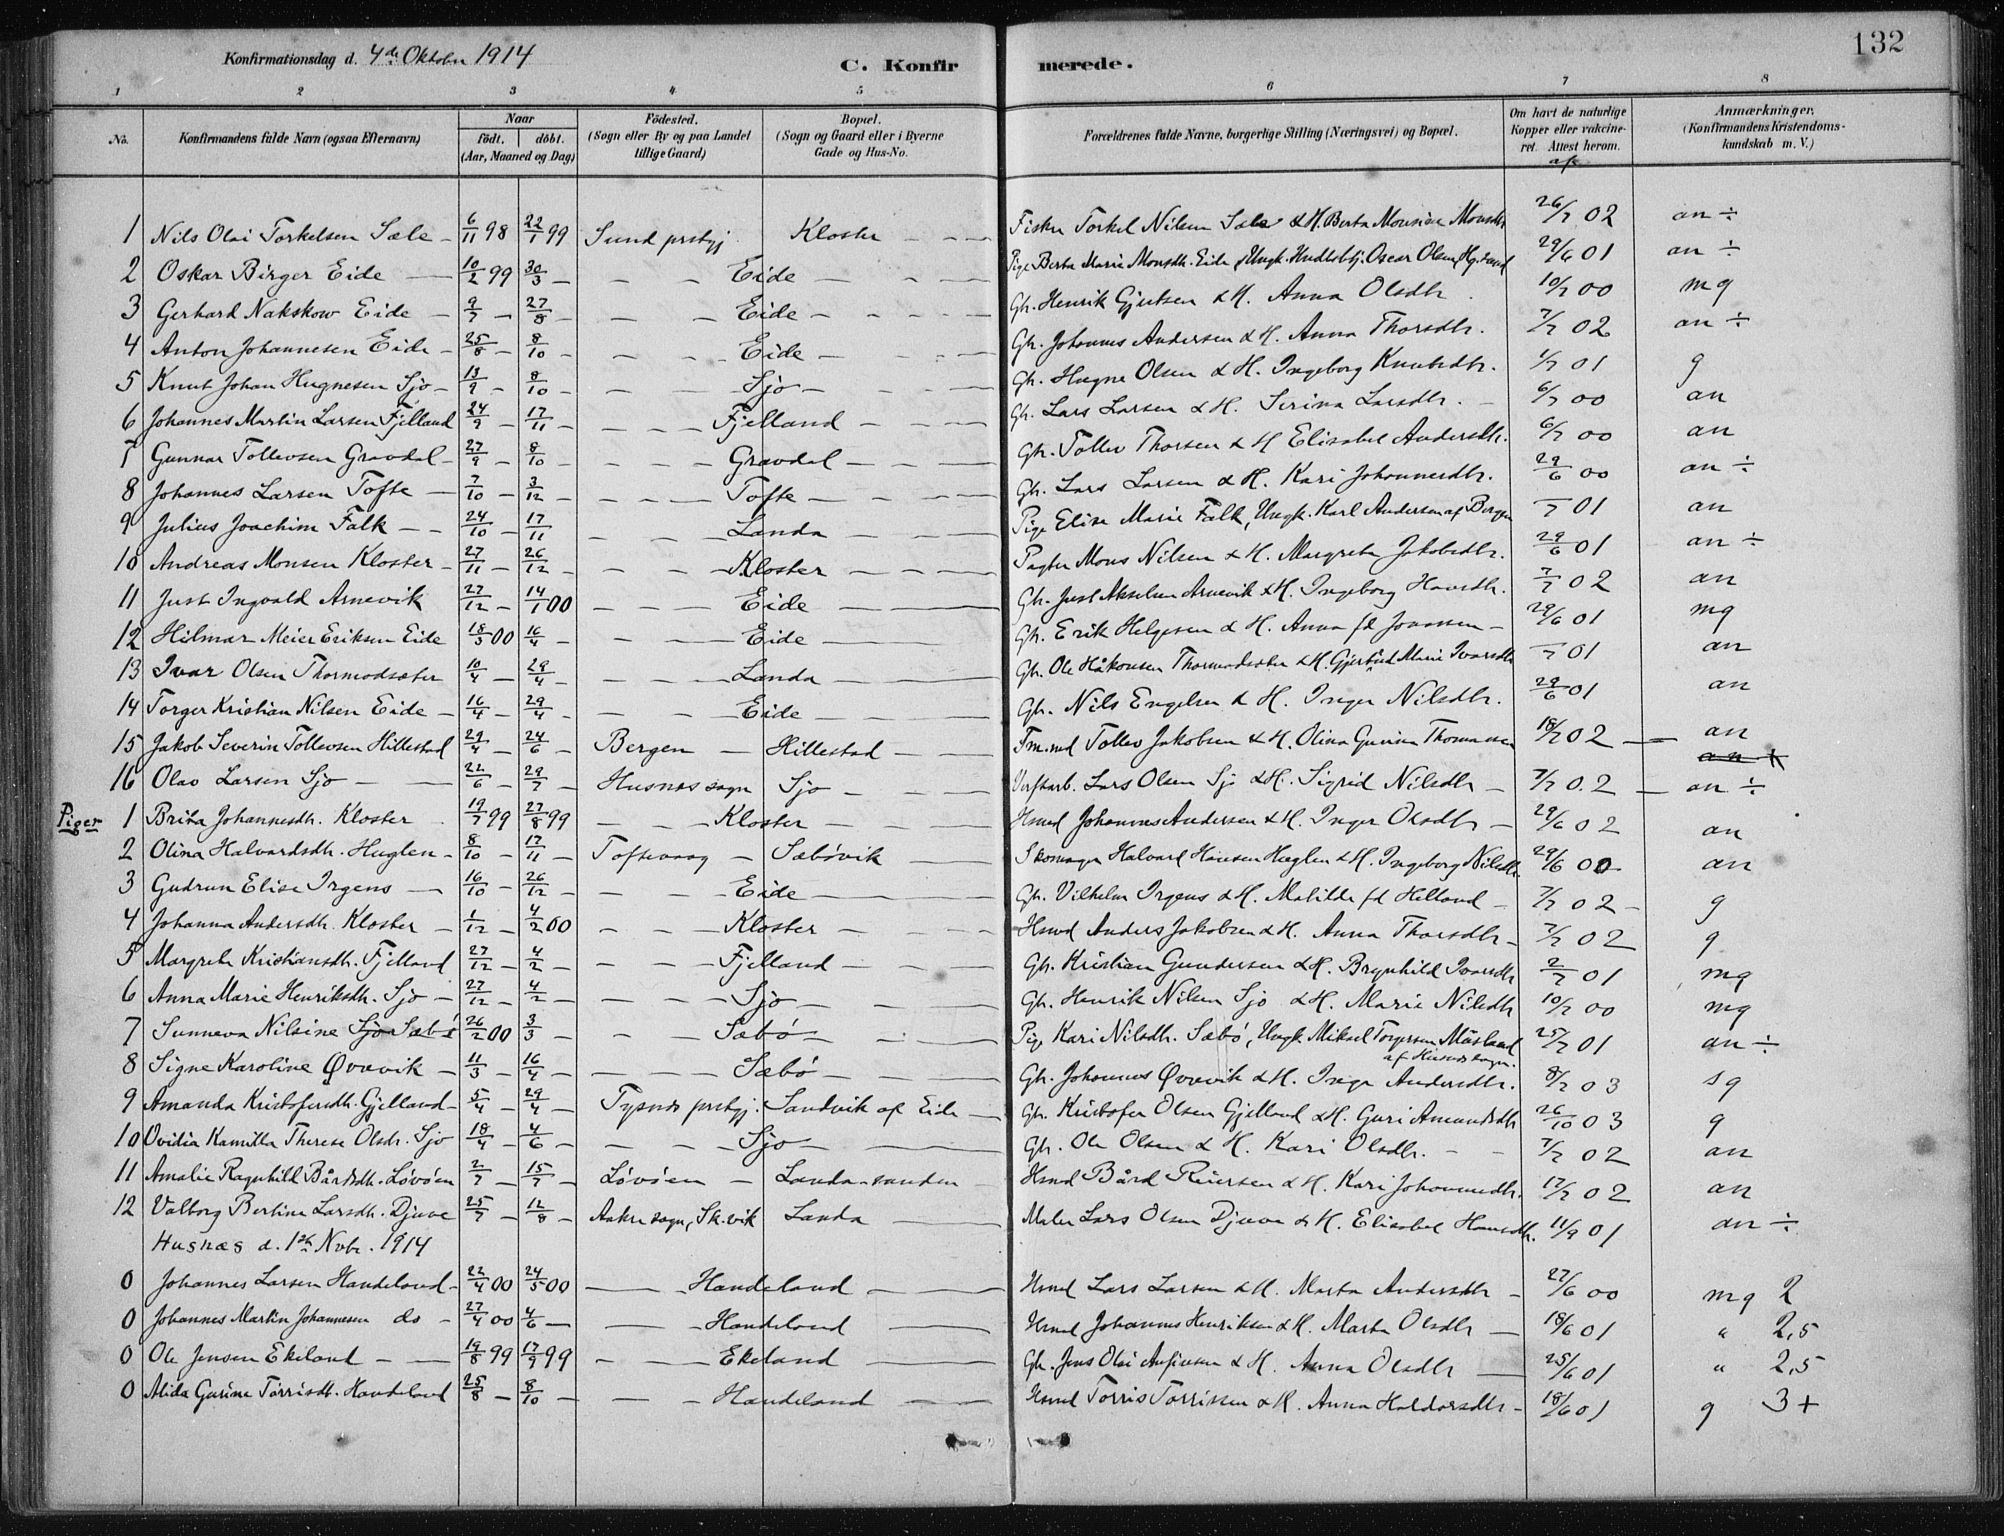 Konfirmationsdag d. 4de Oktober 1914
C. Konfirmerede.
132
1 2 3 4 5 6 7 8
No. Konfirmandens fulde Navn (ogsaa Efternavn) Naar født. døbt. (Aar, Maaned og Dag) Fødested. (Sogn eller By og paa Landet tillige Gaard) Bopæl. (Sogn og Gaard eller i Byerne Gade og Hus-No. Forældrenes fulde Navne, borgerlige Stilling (Næringsvei) og Bopæl. Om havt de naturlige Kopper eller vakcineret. Attest herom. Anmærkninger. (Konfirmandens Kristendomskundskab m. V.)
1 Nils Olai Torkelsen Sæle 6/11 98 22/1 99 Sund prstgj. Kloster Fisker Torkel Nilsen Sæle & H. Berta Monsine Monsdtr 26/7 02 an ÷
2 Oskar Birger Eide 10/2 99 30/3 — — — Eide Pige Berta Marie Monsdh. Eide, Ungk. Oscar Olsen 29/6 01 an ÷
3 Gerhard Nakskow Eide 9/7 — 27/8 — — — Eide Gh. Henrik Gjertsen & H. Anna Olsdtr 10/7 00 mg
4 Anton Johannesen Eide 25/8 — 8/10 — — — Eide Gh. Johannes Andersen & H. Anna Thorsdtr. 7/7 02 an ÷
5 Knut Johan Hugnesen Sjo 13/9 — 8/10 — — — Sjo Gh. Hugne Olsen & H. Ingeborg Knutsdtr. 1/7 01 g
6 Johannes Martin Larsen Fjelland 24/9 — 17/11 — — — Fjelland Gh. Lars Larsen & H. Serina Larsdtr. 6/7 00 an
7 Gunnar Tollevsen Gravdal 27/9 — 8/10 — — — Gravdal Gh. Tollev Thorsen & H Elisabet Andersdtr. 6/7 00 an
8 Johannes Larsen Tofte 7/10 — 3/12 — — — Tofte Gh. Lars Larsen & H. Kari Johannesdtr. 29/6 00 an ÷
9 Julius Joachim Falk 24/10 — 17/11 — — — Landa Pige Elise Marie Falk, Ungk. Karl Andersen af Bergen /7 01 an
10 Andreas Monsen Kloster 27/11 — 26/12 — — — Kloster Pagter Mons Nilsen & H. Margreta Jakobsdtr. 29/6 01 an ÷
11 Just Ingvald Arnevik 27/12 — 14/1 00 — — Eide Gh. Just Akselsen Arnevik & H. Ingeborg Hansdtr. 7/7 02 an
12 Hilmar Meier Eriksen Eide 18/3 00 16/4 — — — Eide Gh. Erik Helgesen & H. Anna fd Jonassen 29/6 01 mg
13 Ivar Olsen Thormodsæter 10/4 — 29/4 — — — Landa Gh. Ole Håkonsen Thormodsæter & H. Gjertrud Marie Ivarsdtr /7 01 an
14 Torger Kristian Nilsen Eide 16/4 — 29/4 — — — Eide Gh. Nils Engelsen & H. Inger Nilsdtr. 29/6 01 an
15 Jakob Severin Tollevsen Hillestad 29/4 — 24/6 — Bergen Hillestad Fm.md Tollev Jakobsen & H. Olina Gurina Thomassen 18/7 02 — an
an
16 Olav Larsen Sjo 22/6 — 29/7 — Husnes sogn Sjo Verftarb. Lars Olsen Sjo & H. Sigrid Nilsdtr 7/7 02 — an ÷
Piger 1 Brita Johannesdh. Kloster 19/7 99 27/8 99 — — Kloster Hsmd Johannes Andersen & H. Inger Olsdtr 29/6 02 an
2 Olina Halvardsdh. Huglen 8/10 — 17/11 — Toftevaag Sæbövik Skomager Halvard Hansen Huglen & H. Ingeborg Nilsdtr. 29/6 00 an
3 Gudrun Elise Irgens 16/10 — 26/12 — — — Eide Gh. Vilhelm Irgens & H. Matilde fd Helland 7/7 02 g
4 Johanna Andersdh. Kloster 1/12 — 4/2 00 — — Kloster Hsmd Anders Jakobsen & H. Anna Thorsdtr 7/7 02 g
5 Margreta Kristiansdh. Fjelland 27/12 — 4/2 — — — Fjelland Gh. Kristian Gundersen & H. Brynhild Ivarsdtr 2/7 01 mg
6 Anna Marie Henriksdh. Sjo 27/12 — 4/2 — — — Sjo Gh. Henrik Nilsen Sjo & H. Marie Nilsdtr 10/7 00 mg
7 Sunneva Nilsine Sjo Sæbö 26/2 00 3/3 — — — Sæbö Pige Kari Nilsdh. Sæbö, Ungk. Mikael Torgersen Måsland 25/7 01 an ÷
af Husnes sogn.
8 Signe Karoline Øvrevik 11/3 — 16/4 — — — Sæbö Gh. Johannes Øvrevik & H. Inga Andersdtr. 8/7 03 sg
9 Amanda Kristofersdh. Gjelland 5/4 — 29/4 — Tysnes prstgj. Sandvik af Eide Gh. Kristofer Olsen Gjelland & H. Guri Amundsdtr 26/10 03 g
10 Ovidia Kamilla Therese Olsdr. Sjo 18/4 — 4/6 — — — Sjo Gh. Ole Olsen & H. Kari Olsdtr. 7/7 02 an
11 Amalie Ragnhild Bårdsdh. Løvøen 2/7 — 15/7 — Løvøen Landa-sanden Hsmd Bård Riersen & H. Kari Johannesdtr. 17/7 02 an
12 Valborg Bertine Larsdh. Djuve 25/7 — 12/8 — Aakre sogn, Sk.vik Landa Maler Lars Olsen Djuve & H. Elisabet Hansdtr. 11/9 01 an ÷
Husnæs d. 1ste Nvbr. 1914
0 Johannes Larsen Handeland 22/4 00 24/5 00 — — Handeland Hsmd Lars Larsen & H. Marta Andersdtr 27/6 00 mg 2
0 Johannes Martin Johannesen do 27/4 00 4/6 — — — Handeland Hsmd Johannes Henriksen & H. Marta Olsdtr 18/6 01 " 2,5
0 Ole Jensen Ekeland 19/8 99 17/9 99 — — Ekeland Gh. Jens Olai Anfinsen & H. Anna Olsdtr 25/6 01 " 2,5
0 Alida Gurine Torrisdt. Handeland 25/8 — 8/10 — — — Handeland Hsmd Torris Torrissen & H. Anna Haldorsdtr 18/6 01 g 3+